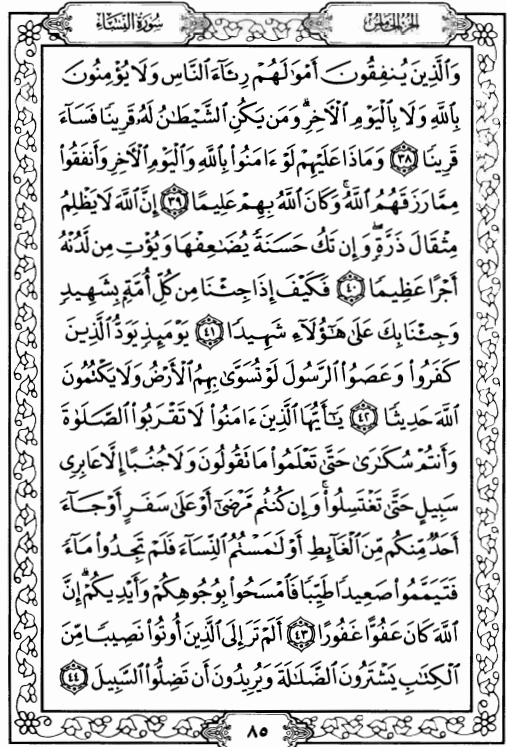 سُورَةُ النِّسَاءِ
الجزء الخامس
وَالَّذِينَ يُنفِقُونَ أَمْوَٰلَهُمْ رِئَآءَ النَّاسِ وَلَا يُؤْمِنُونَ
بِاللَّهِ وَلَا بِالْيَوْمِ الْآخِرِ ۗ وَمَن يَكُنِ الشَّيْطَٰنُ لَهُۥ قَرِينًا فَسَآءَ
قَرِينًا ﴿٣٨﴾ وَمَاذَا عَلَيْهِمْ لَوْ ءَامَنُوا۟ بِاللَّهِ وَالْيَوْمِ الْآخِرِ وَأَنفَقُوا۟
مِمَّا رَزَقَهُمُ اللَّهُ ۚ وَكَانَ اللَّهُ بِهِمْ عَلِيمًا ﴿٣٩﴾ إِنَّ اللَّهَ لَا يَظْلِمُ
مِثْقَالَ ذَرَّةٍ ۖ وَإِن تَكُ حَسَنَةً يُضَٰعِفْهَا وَيُؤْتِ مِن لَّدُنْهُ
أَجْرًا عَظِيمًا ﴿٤٠﴾ فَكَيْفَ إِذَا جِئْنَا مِن كُلِّ أُمَّةٍۭ بِشَهِيدٍ
وَجِئْنَا بِكَ عَلَىٰ هَٰٓؤُلَآءِ شَهِيدًا ﴿٤١﴾ يَوْمَئِذٍ يَوَدُّ الَّذِينَ
كَفَرُوا۟ وَعَصَوُا۟ الرَّسُولَ لَوْ تُسَوَّىٰ بِهِمُ الْأَرْضُ وَلَا يَكْتُمُونَ
اللَّهَ حَدِيثًا ﴿٤٢﴾ يَٰٓأَيُّهَا الَّذِينَ ءَامَنُوا۟ لَا تَقْرَبُوا۟ الصَّلَوٰةَ
وَأَنتُمْ سُكَٰرَىٰ حَتَّىٰ تَعْلَمُوا۟ مَا تَقُولُونَ وَلَا جُنُبًا إِلَّا عَابِرِى
سَبِيلٍ حَتَّىٰ تَغْتَسِلُوا۟ ۚ وَإِن كُنتُم مَّرْضَىٰٓ أَوْ عَلَىٰ سَفَرٍ أَوْ جَآءَ
أَحَدٌ مِّنكُم مِّنَ الْغَآئِطِ أَوْ لَٰمَسْتُمُ النِّسَآءَ فَلَمْ تَجِدُوا۟ مَآءً
فَتَيَمَّمُوا۟ صَعِيدًا طَيِّبًا فَامْسَحُوا۟ بِوُجُوهِكُمْ وَأَيْدِيكُمْ ۗ إِنَّ
اللَّهَ كَانَ عَفُوًّا غَفُورًا ﴿٤٣﴾ أَلَمْ تَرَ إِلَى الَّذِينَ أُوتُوا۟ نَصِيبًا مِّنَ
الْكِتَٰبِ يَشْتَرُونَ الضَّلَٰلَةَ وَيُرِيدُونَ أَن تَضِلُّوا۟ السَّبِيلَ ﴿٤٤﴾
٨٥